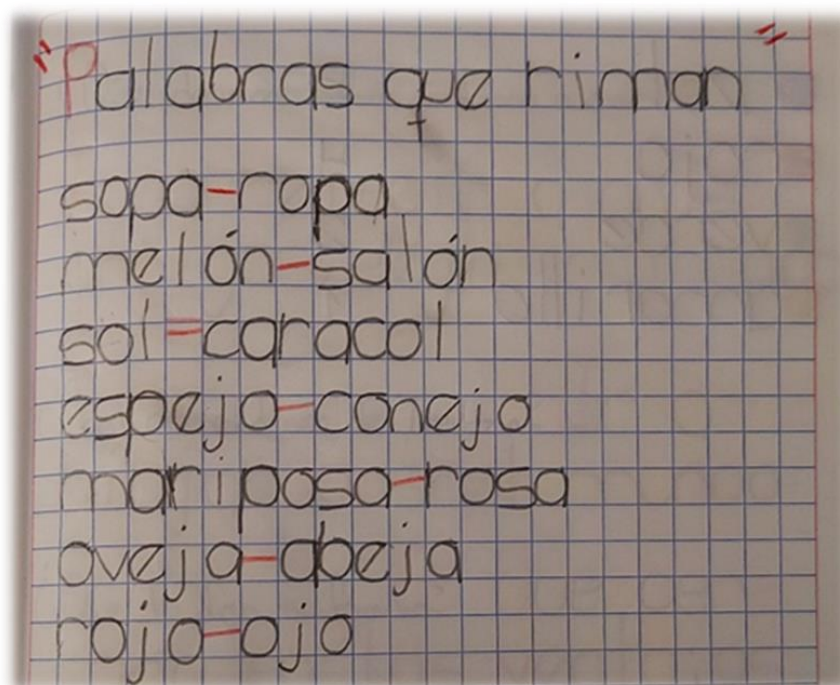 "Palabras que riman"
sopa-ropa
melón-salón
sol=caracol
espejo-conejo
mariposa-rosa
oveja-abeja
rojo-ojo